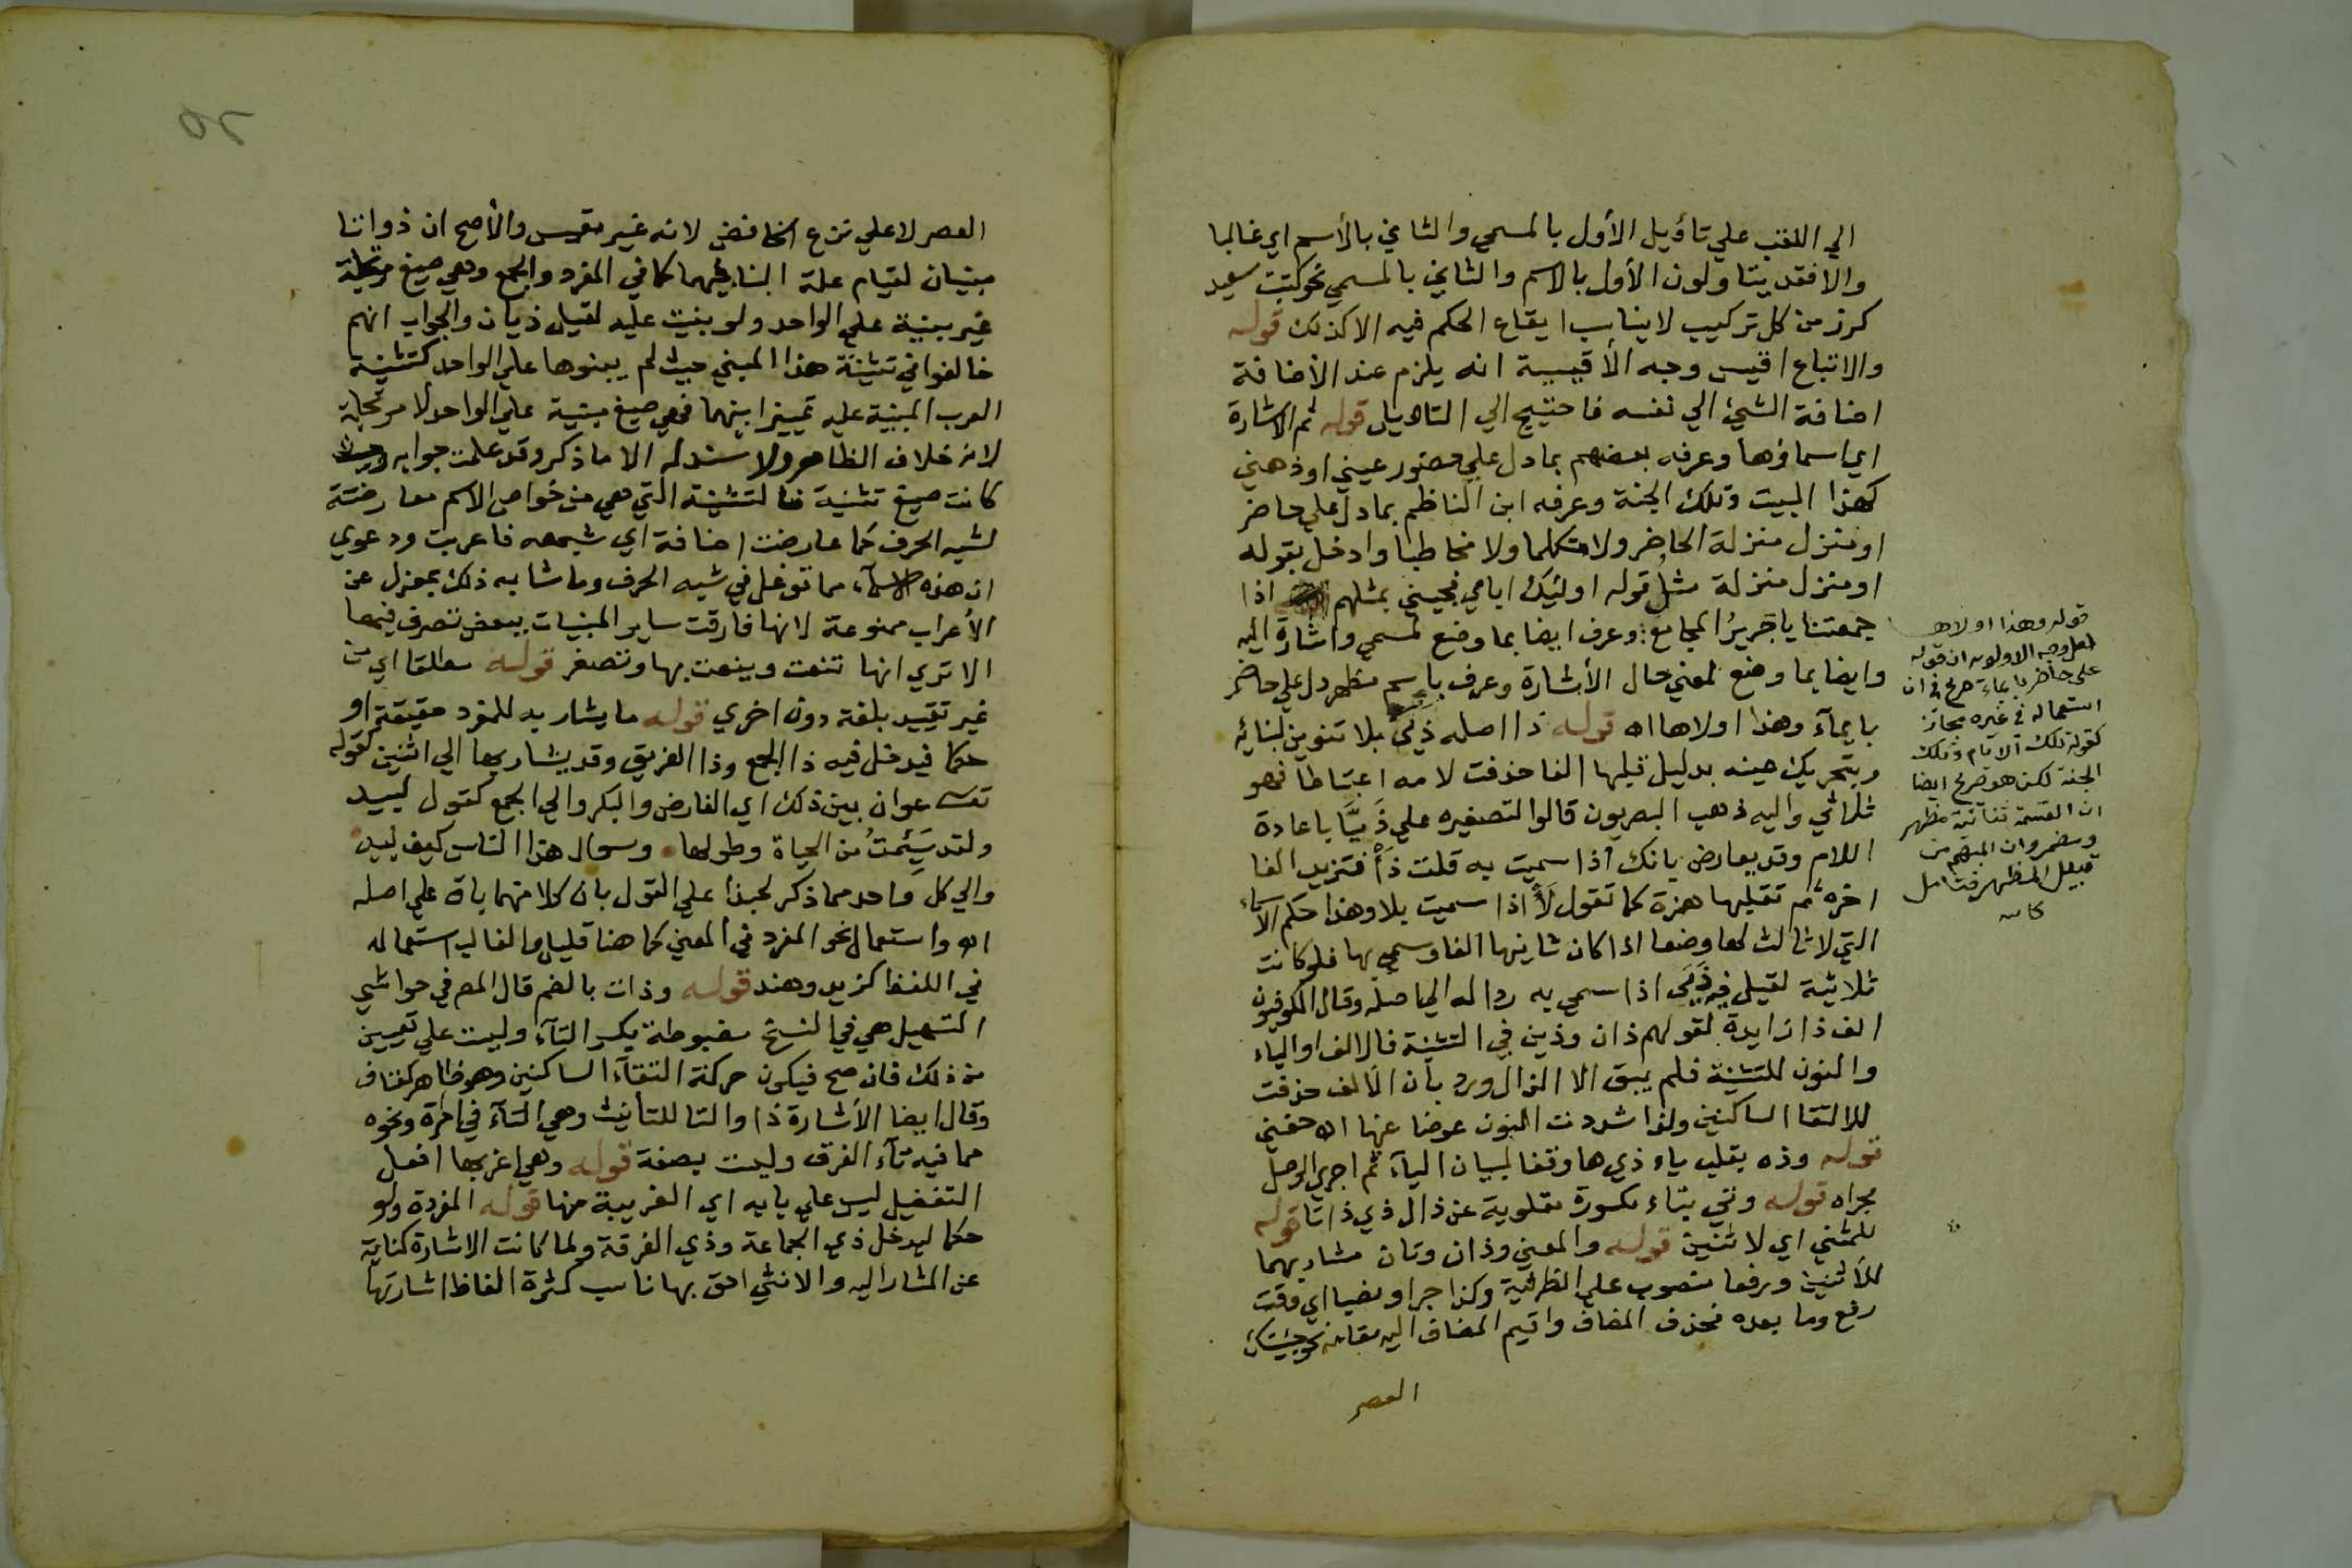 الي اللقب علي تأويل الأول بالمسمي والثاني بالأسم اي غالبا
والا فقد يتاولون الأول بالاسم والثاني بالمسمي نحو كتبت سعيد
كرز من كل تركيب لا يناسب ايقاع الحكم فيه الا كذلك قوله
والاتباع اقيس وجه الأقيسية انه يلزم عند الأضافة
اضافة الشيئ الي نفسه فاحتيج الي التاويل قوله ثم الاشارة
اي اسماؤها وعرفه بعضهم بما دل علي حضور عيني او ذهني
كهذا البيت وتلك الجنة وعرفه ابن الناظم بما دل علي حاضر
او منزل منزلة الحاضر ولا متكلما ولا مخاطبا وادخل بقوله
او منزل منزلة مثل قوله اوليك ابايي فجيني بمثلهم اذا
جمعتنا يا جرير المجامع وعرف ايضا بما وضع لمسمي واشارة اليه
وايضا بما وضع لمعني حال الأشارة وعرف باسم مظهر دل علي حاضر
بايمآء وهذا اولاها اه قوله ذا اصله ذيي بلا تنوين لبنائه
وبتحريك عينه بدليل قبلها الفا حذفت لامه اعتباطا فهو
ثلاثي واليه ذهب البصريون قالوا لتصغيره علي ذيا باعادة
اللام وقد يعارض بانك اذا سميت به قلت ذأ فتزيد الفا
اخره ثم تقلبها همزة كما تقول لأ اذا سميت بلا وهذا حكم الاسماء
التي لا ثالث لها وضعا اذا كان ثانيها الفا وسمي بها فلو كانت
ثلاثية لقيل فيه ذيي اذا سمي به ردا له الي اصله وقال الكوفيون
الف ذا زايدة لقولهم ذان وذين في التثنية فالالف او الياء
والنون للتثنية فلم يبق الا الذال ورد بأن الألف حذفت
للالتقا الساكنين ولذا شددت النون عوضا عنها اه حفني
قوله وذه بقلب ياء ذي ها وقفا لبيان اليآء ثم اجري الوصل
مجراه قوله وتي بتاء مكسورة مقلوبة عن ذال ذي ذا تا قوله
للمثني اي لاثنين قوله والمعني وذان وتان مشار بهما
للأثنين ورفعا منصوب علي الظرفية وكذا جرا ونصبا اي وقت
رفع وما بعده فحذف المضاف واقيم المضاف اليه مقامه نحو جيتك
العصر
قوله وهذا اولاها
لعل وجه الاولويه ان قوله
على حاضر بايماء صريح في ان
استعماله في غيره مجاز
كقوله تلك الايام وتلك
الجنة لكن هو صريح ايضا
ان القسمة ثنائية مظهر
ومضمر وان المبهم من
قبيل المظهر فتامل
كاتبه
٥٢
العصر لا علي نزع الخافض لانه غير مقيس والأصح ان ذوا وتا
مبنيان لقيام علة البنا فيهما كما في المفرد والجمع وهي صيغ مرتجلة
غير مبنية علي الواحد ولو بنيت عليه لقيل ذيان والجواب انهم
خالفوا في تثنية هذا المبني حيث لم يبنوها علي الواحد كتثنية
العرب المبنية عليه تمييزا بينهما فهي صيغ مبنية علي الواحد لا مرتجلة
لانه خلاف الظاهر ولا سند له الا ما ذكر وقد علمت جوابه وحيث
كانت صيغ تثنية فالتثنية التي هي من خواص الاسم معارضة
لشبه الحرف كما عارضت اضافة اي شبهه فاعربت ودعوي
ان هذه الاسمآء مما توغل في شبه الحرف وما شابه ذلك بمعزل عن
الأعراب ممنوعة لانها فارقت ساير المبنيات ببعض تصرف فيها
الا تري انها تنعت وينعت بها وتصغر قوله مطلقا اي من
غير تقييد بلغة دون اخري قوله ما يشار به للمفرد حقيقة او
حكما فيدخل فيه ذا الجمع وذا الفريق وقد يشار بها الي اثنين كقوله
تعـ عوان بين ذلك اي الفارض والبكر والي الجمع كقول لبيد
ولقد سئمت من الحياة وطولها وسوال هذا الناس كيف لبيد
والي كل واحد مما ذكر لحبذا علي القول بان كلا منهما باق علي اصله
اه واستعمال نحو المفرد في المعني كما هنا قليل والغالب استعماله
في اللفظ كزيد وهند قوله وذات بالضم قال المص في حواشي
التسهيل هي في النسخ مضبوطة بكسر التآء ولست علي تعيين
من ذلك فان صح فيكون حركة التقآء الساكنين وهو ظاهر كفتاف
وقال ايضا الأشارة ذا والتا للتأنيث وهي التآء في امرة ونحوه
مما فيه تآء الفرق وليست بصفة قوله وهي اغربها افعل
التفضيل ليس علي بابه اي الغريبة منها قوله المفردة ولو
حكما ليدخل ذي الجماعة وذي الفرقة ولما كانت الاشارة كناية
عن المشار اليه والانثي احق بها ناسب كثرة الفاظ اشارتها